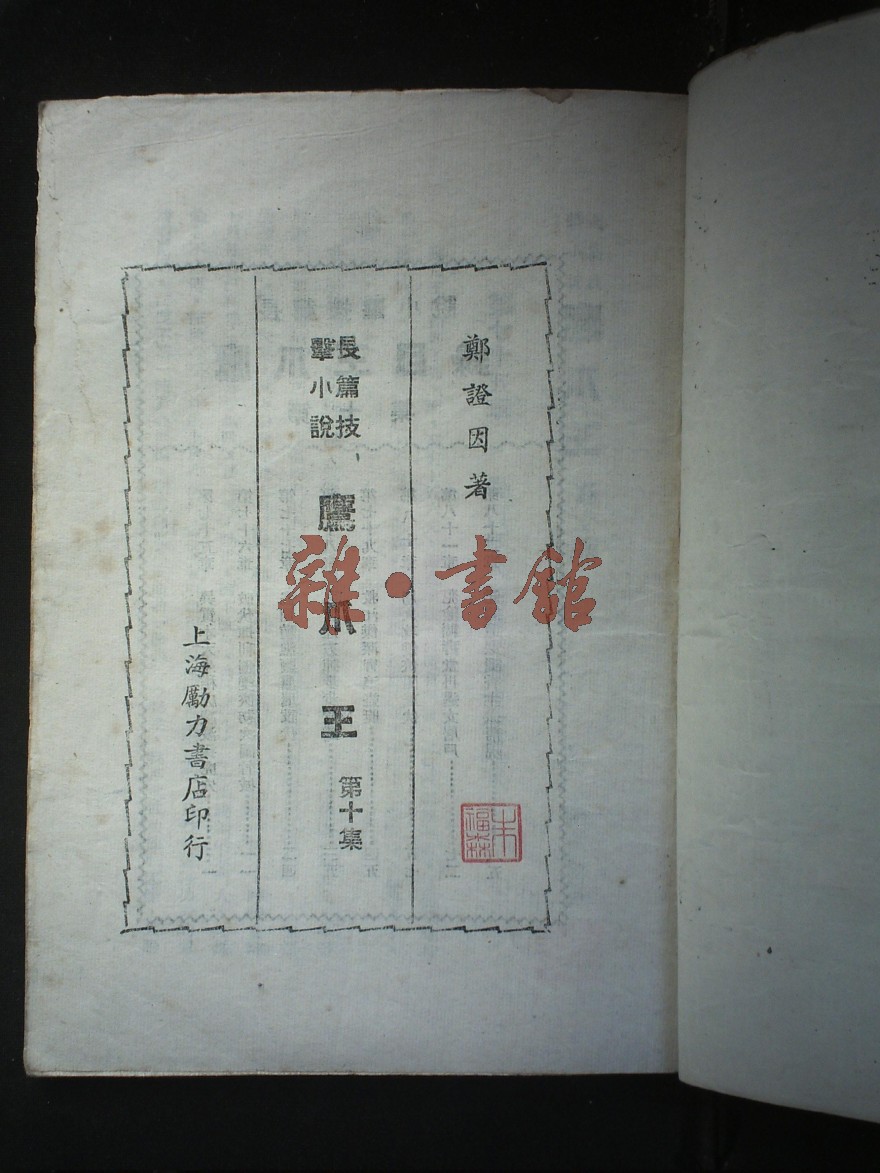 鄭證因著
長篇技
擊小說
鷹爪王
第十集
上海勵力書店印行
朱
福森
雜·書館